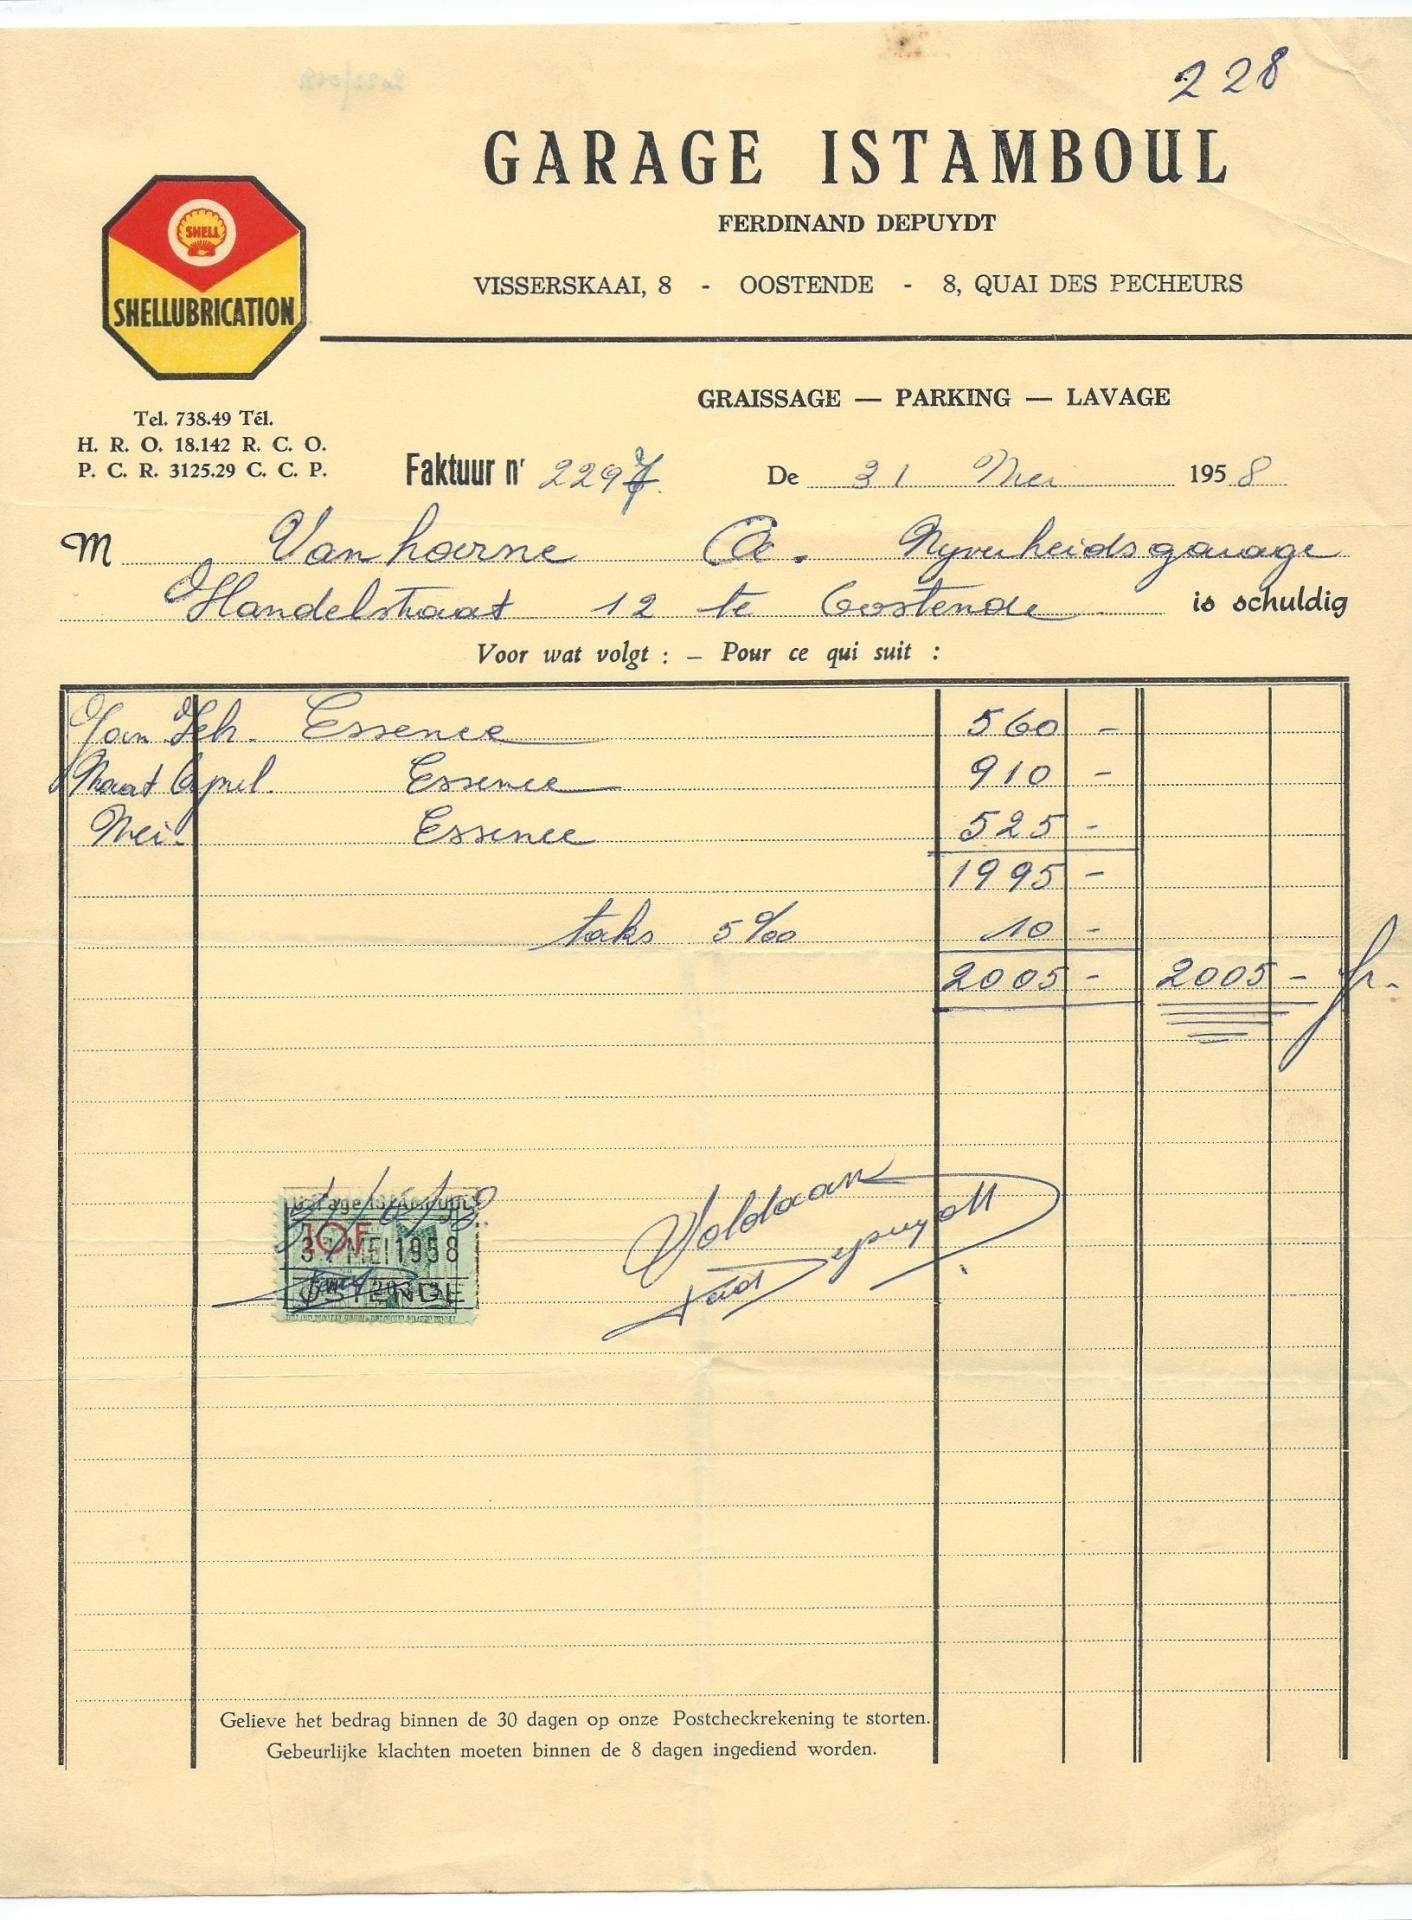 228
GARAGE ISTAMBOUL
FERDINAND DEPUYDT
VISSERSKAAI, 8 - OOSTENDE - 8, QUAI DES PECHEURS
SHELL
SHELLUBRICATION
GRAISSAGE — PARKING — LAVAGE
Tel. 738.49 Tél.
H. R. O. 18.142 R. C. O.
P. C. R. 3125.29 C. C. P.
Faktuur nr 2297 De 31 Mei 1958
M Vanhoorne Nyverheidsgarage
Handelstraat 12 te Oostende is schuldig
Voor wat volgt : – Pour ce qui suit :
Jan Feb. Essence 560 -
Maart April. Essence 910 -
Mei. Essence 525 -
1995 -
taks 5‰ 10 -
2005 - 2005 - fr.
Garage ISTAMBOUL
10F
31 MEI 1958
OSTENDE
Voldaan
Depuydt
Gelieve het bedrag binnen de 30 dagen op onze Postcheckrekening te storten.
Gebeurlijke klachten moeten binnen de 8 dagen ingediend worden.